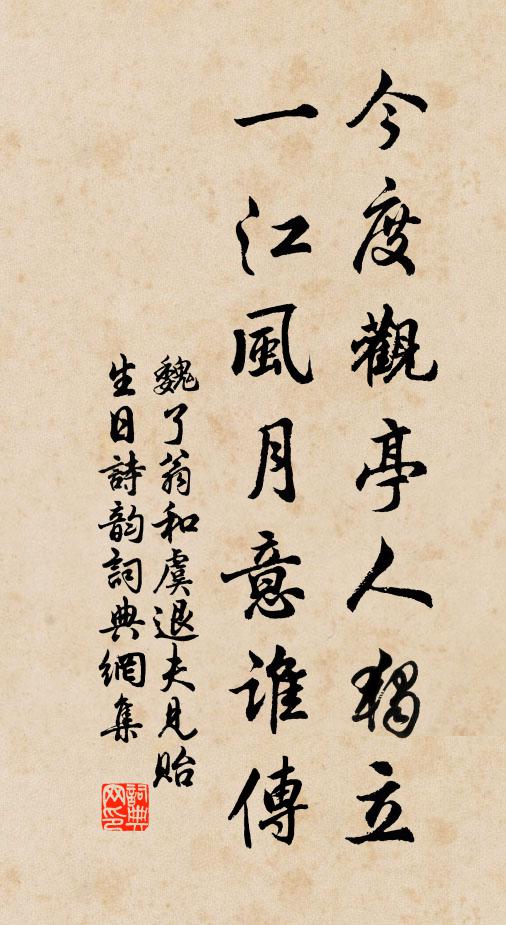 今度觀亭人獨立
一江風月意誰傳
魏了翁和虞退夫見貽
生日詩韵詞典網集
詞典网印